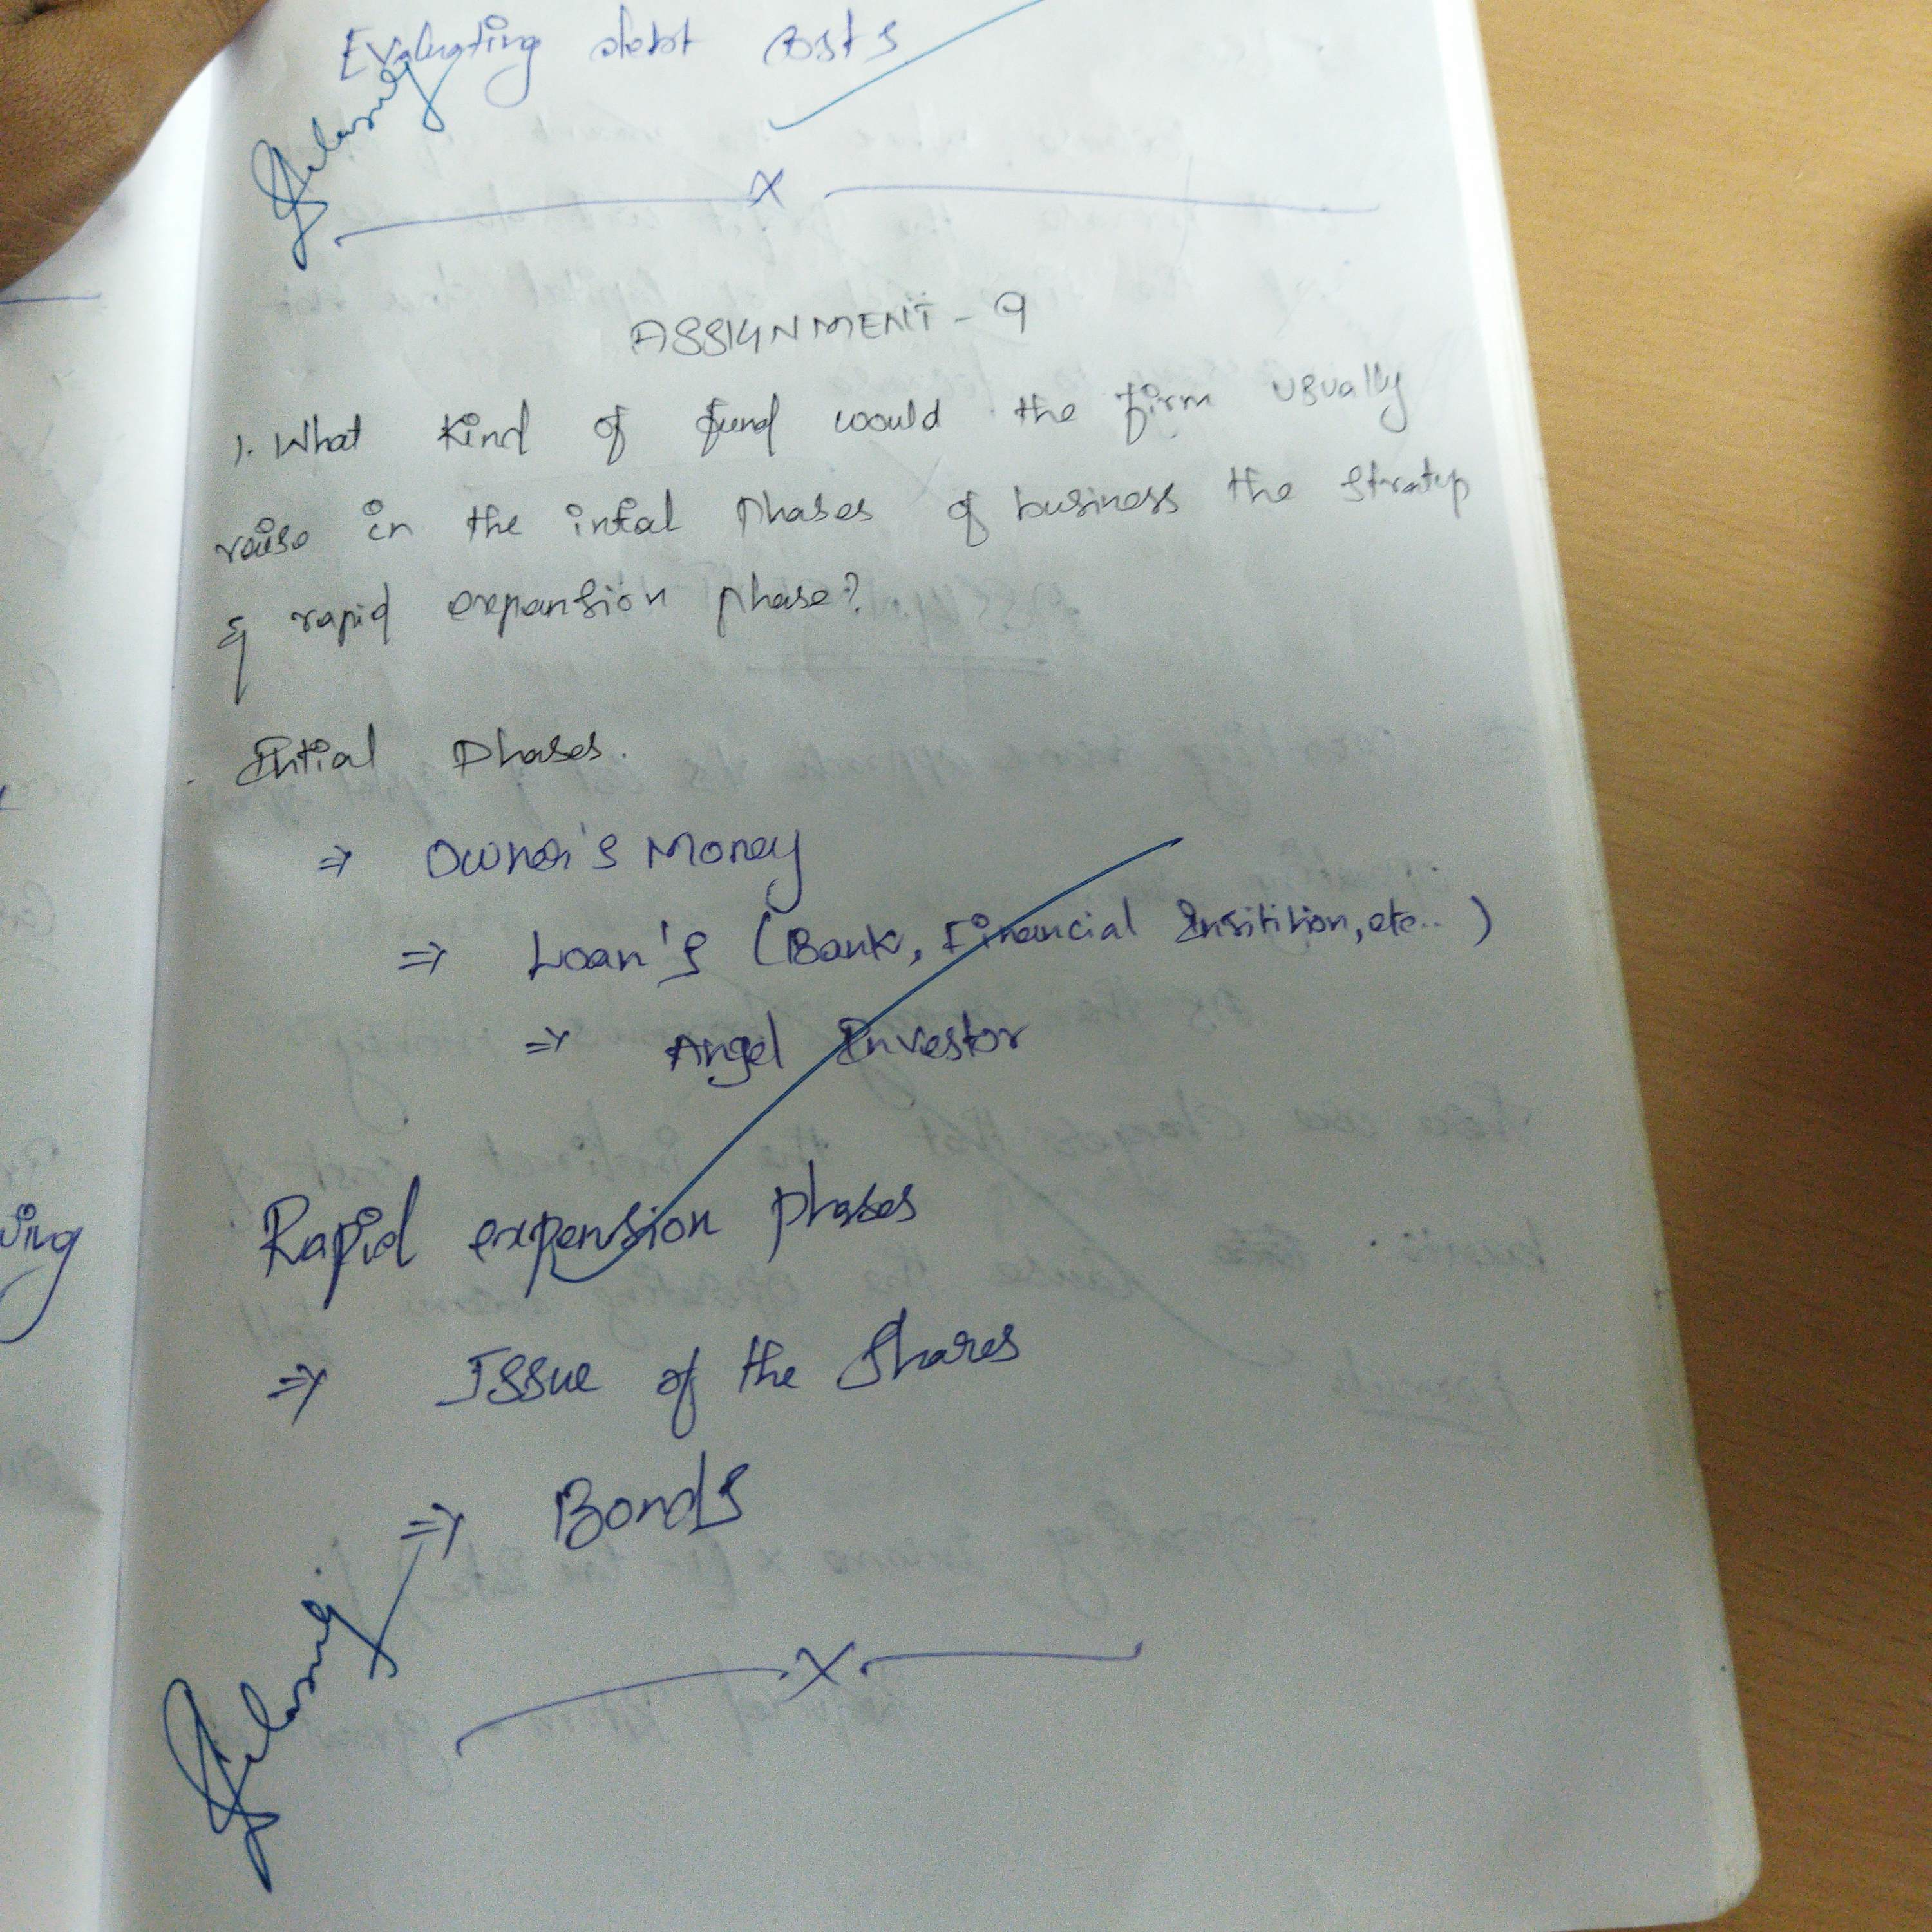 Evaluating debt costs
x
ASSIGNMENT - 9
1. What kind of fund would the firm usually
raise in the intial phases of business the stratup
& rapid expansion phase?
Intial Phases.
⇒ Owner's Money
⇒ Loan's (Bank, Financial Insitition, etc.. )
⇒ Angel Investor
Rapid expension phases
⇒ Issue of the Shares
⇒ Bonds
x